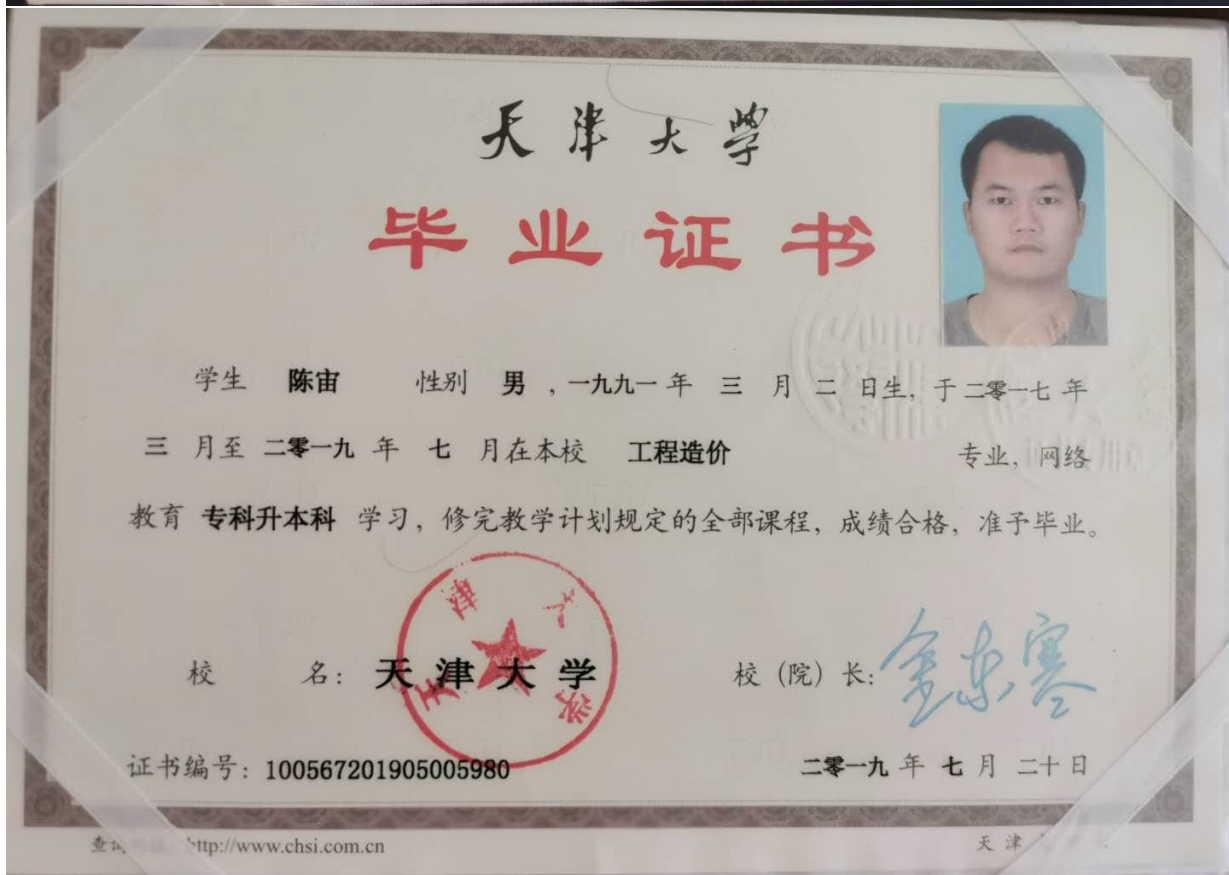 天津大学
毕业证书
学生 陈宙 性别 男 ,一九九一年 三 月 二 日生, 于二零一七年
三 月至 二零一九 年 七 月在本校 工程造价 专业, 网络
教育 专科升本科 学习, 修完教学计划规定的全部课程, 成绩合格, 准予毕业。
天津大学
校 名: 天津大学 校 (院) 长: 金东寒
证书编号: 100567201905005980 二零一九 年 七 月 二十 日
查 http://www.chsi.com.cn 天津